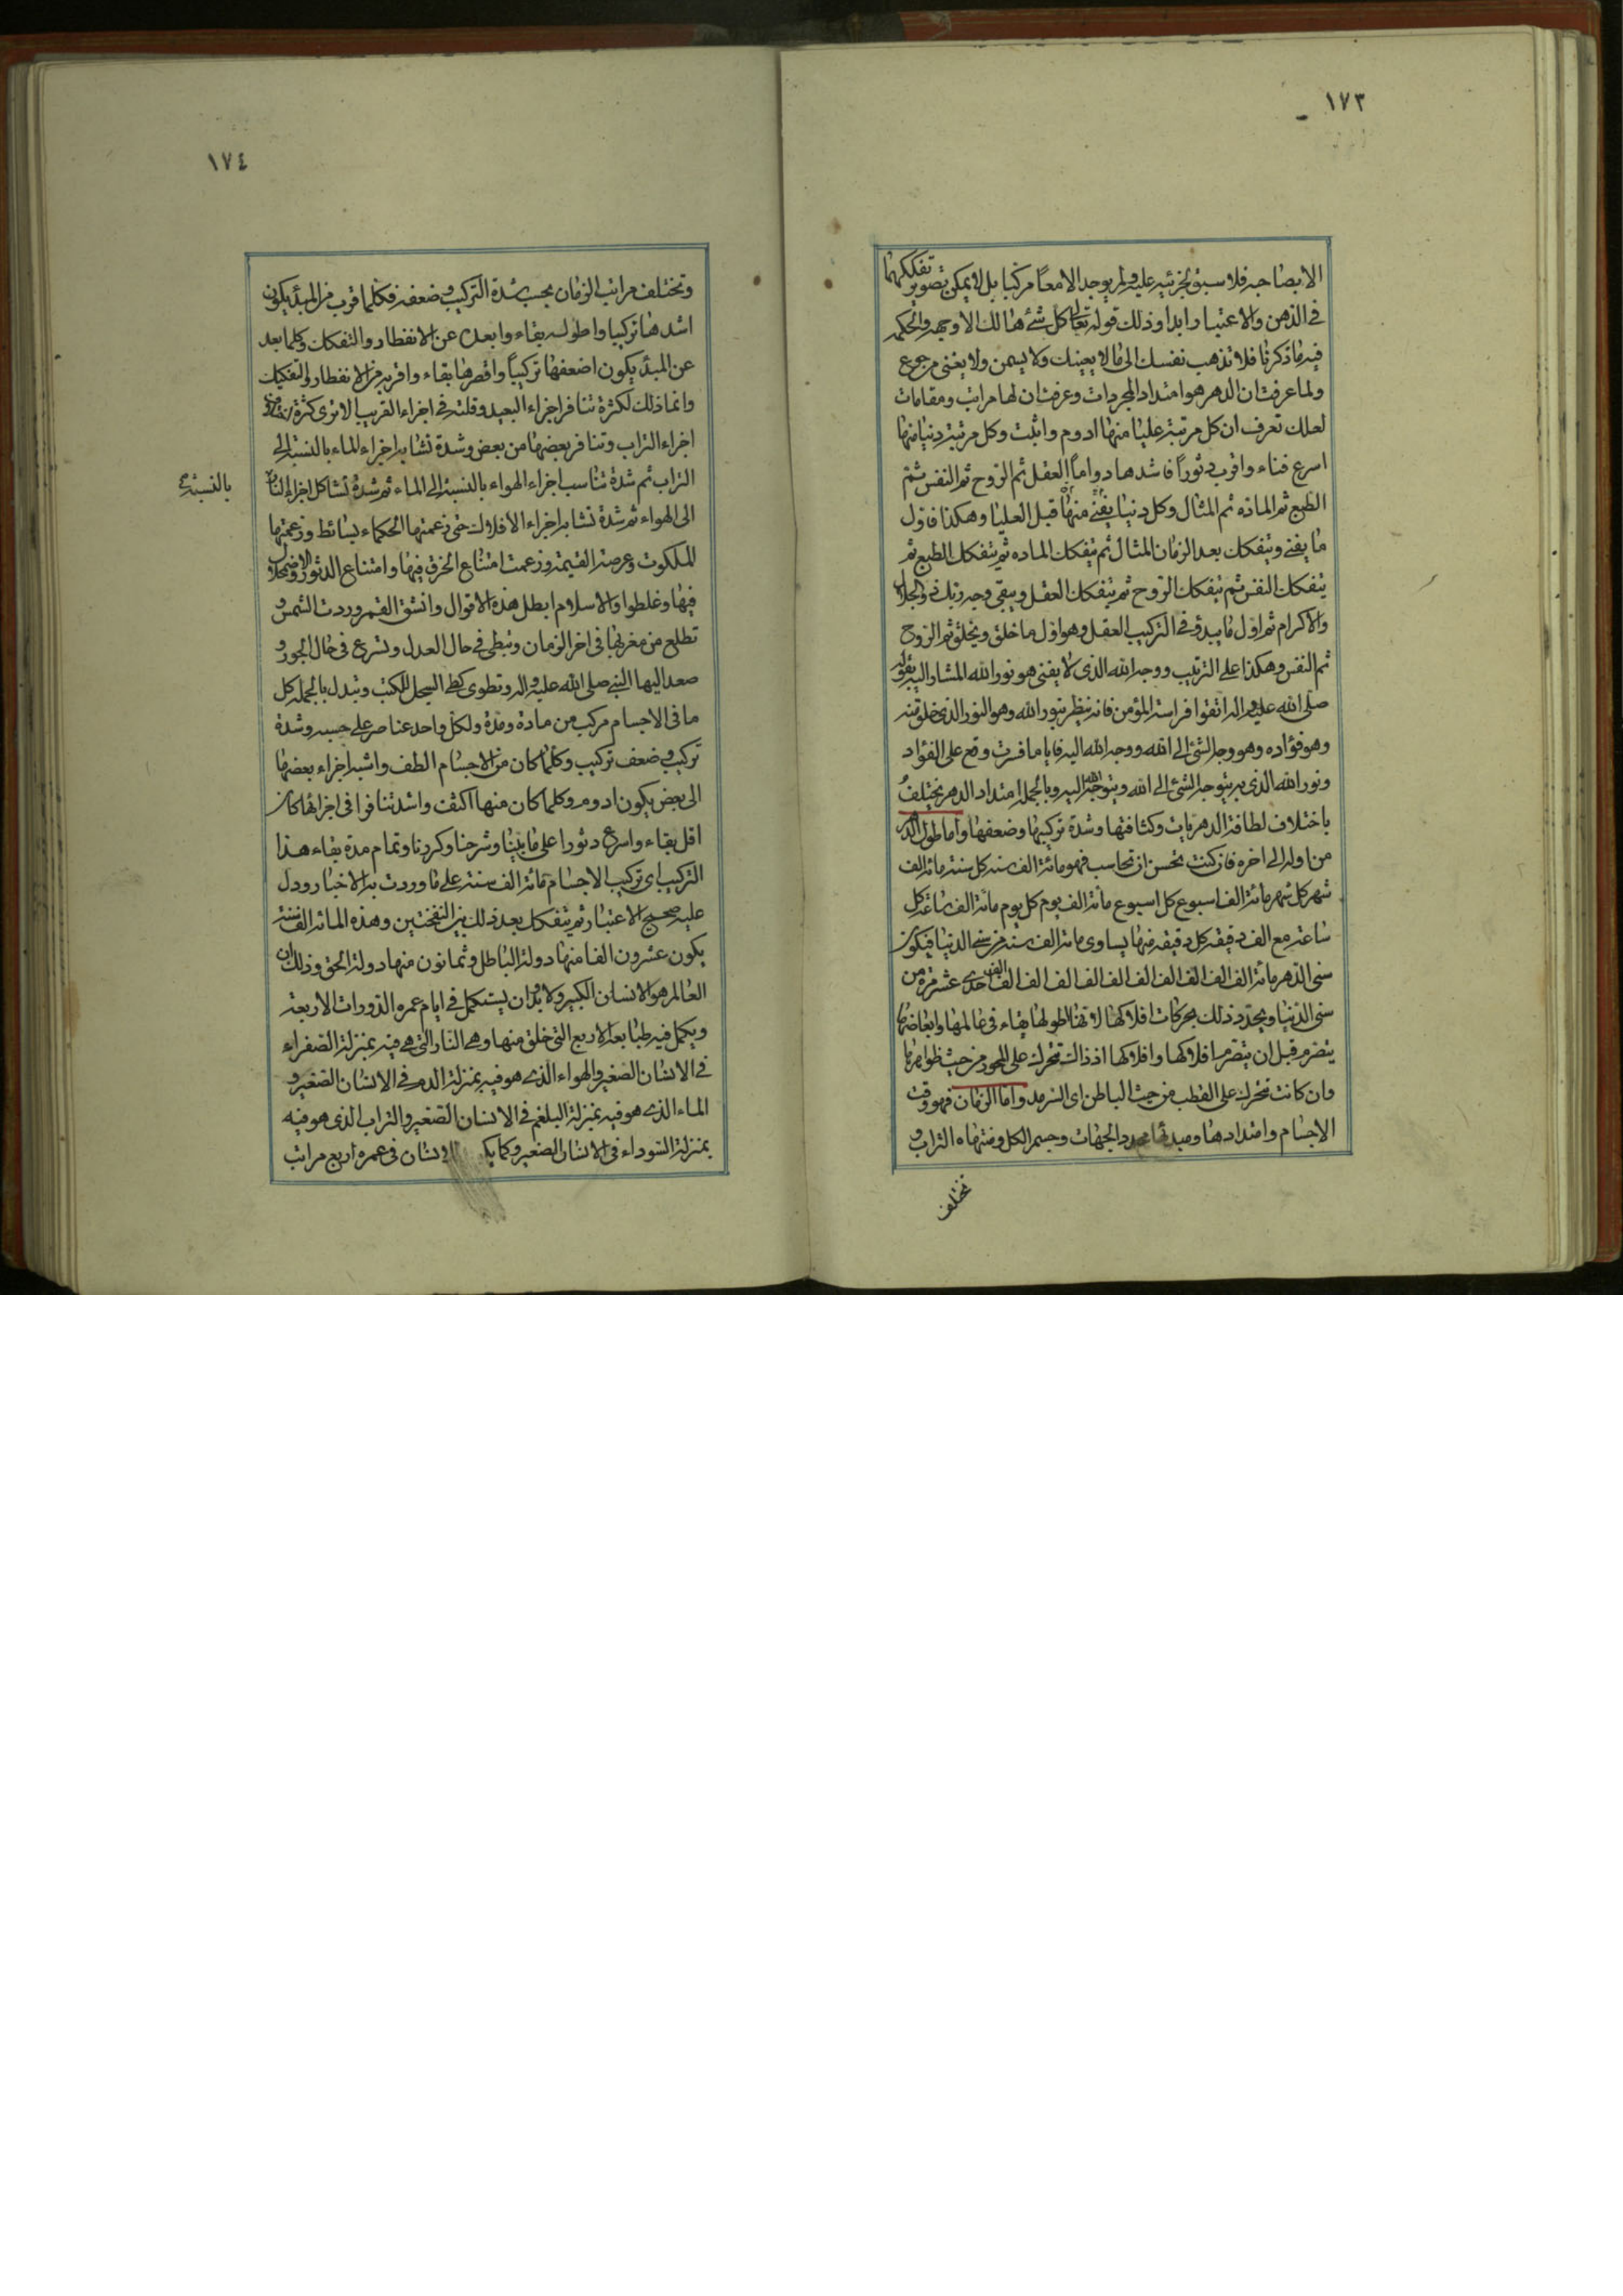 ١٧٣
الا بصاحبه فلا سبق لجزئيه عليه ولم يوجد الا معاً مركبا بل لا يمكن تصوير تفككهما
فى الذهن والاعتبار ابدا وذلك قوله تعالى كل شئ هالك الا وجهه والحكم
فيه ما ذكرنا فلا تذهب نفسك الى ما لا يعنيك ولا يسمن ولا يغنى من جوع
ولما عرفت ان الدهر هو امتداد المجردات وعرفت ان لها مراتب ومقامات
لعلك تعرف ان كل مرتبة عليا منها ادوم واثبت وكل مرتبة دنيا منها
اسرع فناء واقرب دثوراً فاشدها دواماً العقل ثم الروح ثم النفس ثم
الطبع ثم الماده ثم المثال وكل دنيا يفنى منها قبل العليا وهكذا فاول
ما يفنى ويتفكك بعد الزمان المثال ثم يتفكك الماده ثم يتفكك الطبع ثم
يتفكك النفس ثم يتفكك الروح ثم يتفكك العقل ويبقى وجه ربك ذو الجلال
والاكرام ثم اول ما يبدؤ فى التركيب العقل وهو اول ما خلق ويخلق ثم الروح
ثم النفس وهكذا على الترتيب ووجه الله الذى لا يفنى هو نور الله المشار اليه بقوله
صلى الله عليه واله اتقوا فراسة المؤمن فانه ينظر بنور الله وهو النور الذى خلق منه
وهو فؤاده وهو وجه الشئ الى الله ووجه الله اليه فايا ما فسرت وقع على الفؤاد
ونور الله الذى به يتوجه الشئ الى الله ويتوجه الله اليه وبالجملة امتداد الدهر يختلف
باختلاف لطافة الدهريات وكثافتها وشدة تركيبها وضعفها واما طول الدهر
من اوله الى اخره فان كنت تحسن ان تحاسب فهو مائة الف سنه كل سنة مائة الف
شهر كل شهر مائة الف اسبوع كل اسبوع مائة الف يوم كل يوم مائة الف ساعة كل
ساعة مع الف دقيقه كل دقيقه منها يساوى مائة الف سنه من سنى الدنيا فيكون
سنى الدهر مائة الف الف الف الف الف الف الف الف الف الف احدى عشر مرة من
سنى الدنيا ويحدد ذلك بحركات افلاكها لا تها اطولها بقاء فى عالمها وابعاضها
ينصرم قبل ان ينصرم افلاكها وافلاكها اذ ذاك تتحرك على المحور من حيث ظواهرها
وان كانت تتحرك على القطب من حيث الباطن اى السرمد واما الزمان فهو وقت
الاجسام وامتدادها ومبدئها محدد الجهات وجسم الكل ومنتهاه التراب و
تختلف
١٧٤
وتختلف مراتب الزمان بحسب شدة التركيب وضعفه فكلما قرب من المبدء يكون
اشدها تركيبا واطوله بقاء وابعده عن الانفطار والتفكك وكلما بعد
عن المبدء يكون اضعفها تركيباً واقصرها بقاء واقربه من الانفطار والتفكيك
وانما ذلك لكثرة تنافر اجزاء البعيد وقلته فى اجزاء القريب الا ترى كثرة اختلاف
اجزاء التراب وتنافر بعضها من بعض وشدة تشابه اجزاء الماء بالنسبة الى
التراب ثم شدة تناسب اجزاء الهواء بالنسبة الى الماء ثم شدة تشاكل اجزاء النار
بالنسبة
الى الهواء ثم شدة تشابه اجزاء الأفلاك حتى زعمتها الحكماء بسائط وزعمتها
الملكوت وعرصة القيمة وزعمت امتناع الخرق فيها وامتناع الدثور والاضمحلال
فيها وغلطوا والاسلام ابطل هذه الاقوال وانشق القمر وردت الشمس و
تطلع من مغربها فى اخر الزمان وتبطى فى حال العدل وتسرع فى حال الجور و
صعد اليها النبى صلى الله عليه واله وتطوى كطى السجل للكتب وتبدل بالجملة كل
ما فى الاجسام مركب من مادة ومدة ولكل واحد عناصر على حسبه وشدة
تركيب وضعف تركيب وكلما كان من الاجسام الطف واشبه اجزاء بعضها
الى بعض يكون ادوم وكلما كان منها اكثف واشد تنافرا فى اجزائها كان
اقل بقاء واسرع دثورا على ما بينا وشرحنا وكررنا وتمام مدة بقاء هذا
التركيب اى تركيب الاجسام مائة الف سنة على ما وردت به الاخبار ودل
عليه صحيح الاعتبار ثم يتفكك بعد ذلك بين النفختين وهذه المائة الف سنة
يكون عشرون الفا منها دولة الباطل وثمانون منها دولة الحق وذلك ان
العالم هو الانسان الكبير ولا بد ان يستكمل فى ايام عمره الدورات الاربعة
ويكمل فيه طبايعه الاربع التى خلق منها وهى النار التى هى فيه بمنزلة الصفراء
فى الانسان الصغير والهواء الذى هو فيه بمنزلة الدم فى الانسان الصغير و
الماء الذى هو فيه بمنزلة البلغم فى الانسان الصغير والتراب الذى هو فيه
بمنزلة السوداء فى الانسان الصغير وكما الانسان فى عمره اربع مراتب